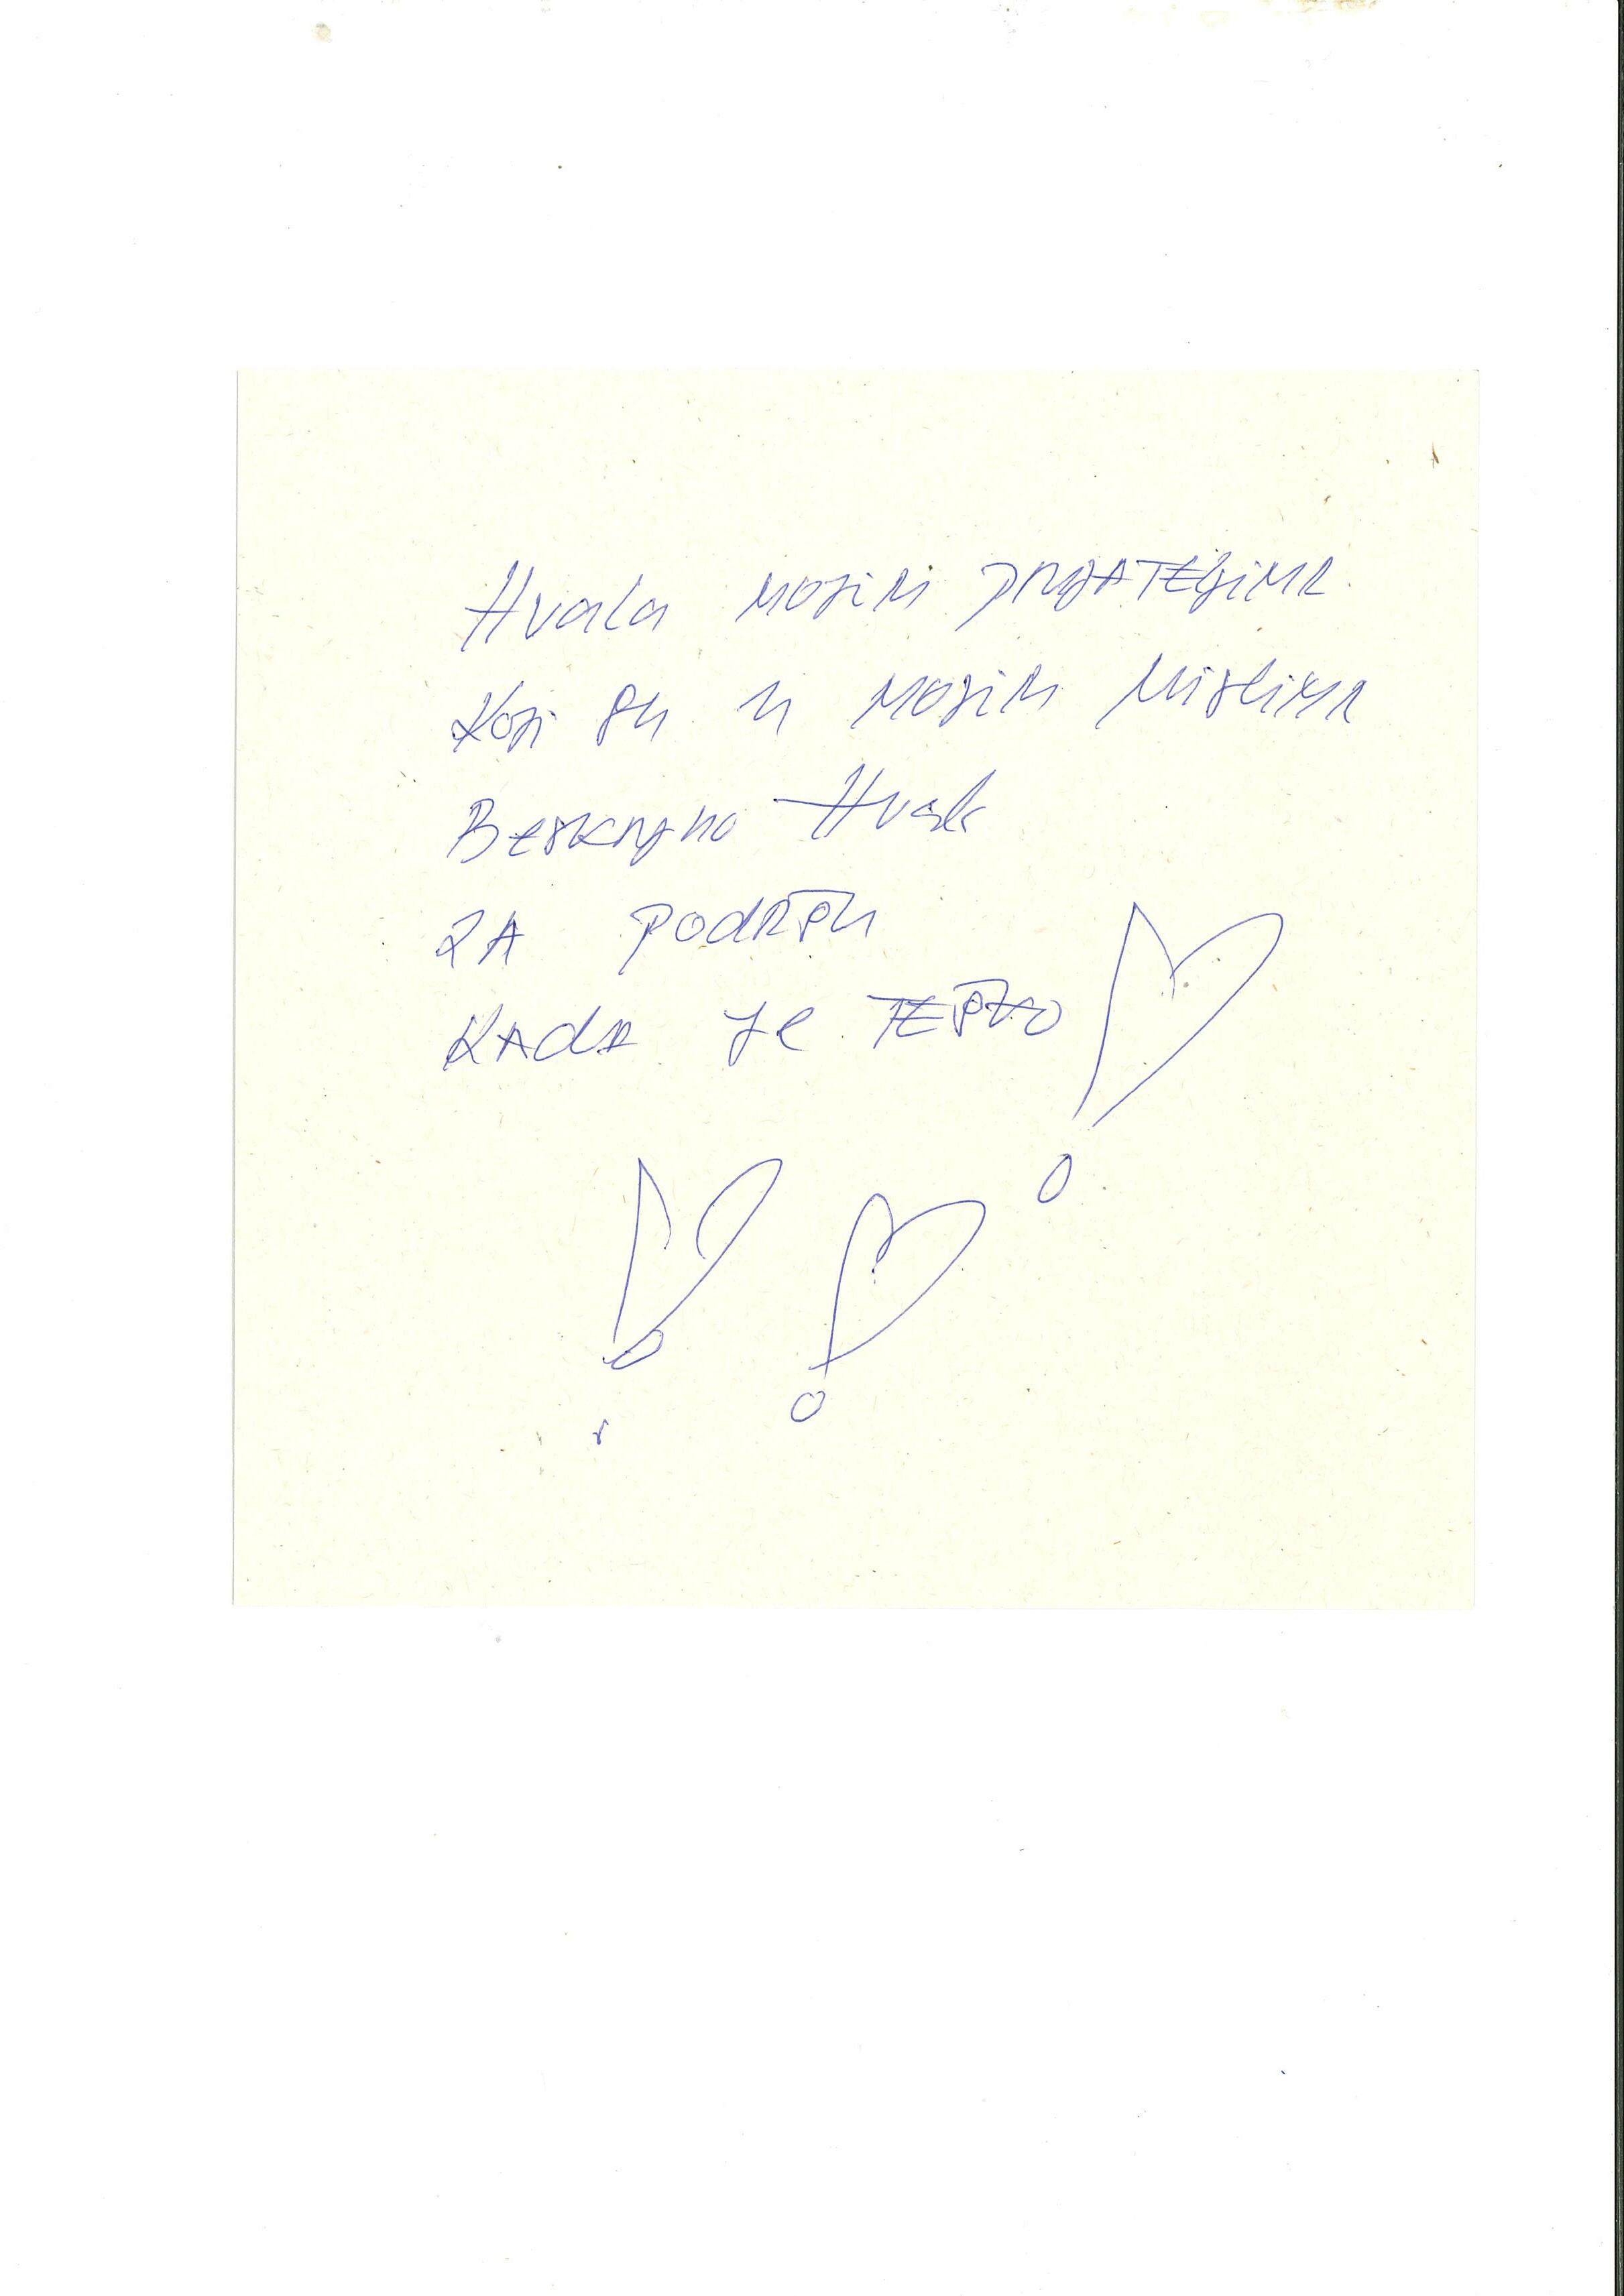 Hvala mojim prijateljima
Koji su u mojim mislima
Beskrajno Hvala
ZA PodRšku
KAdA je TEŠKO